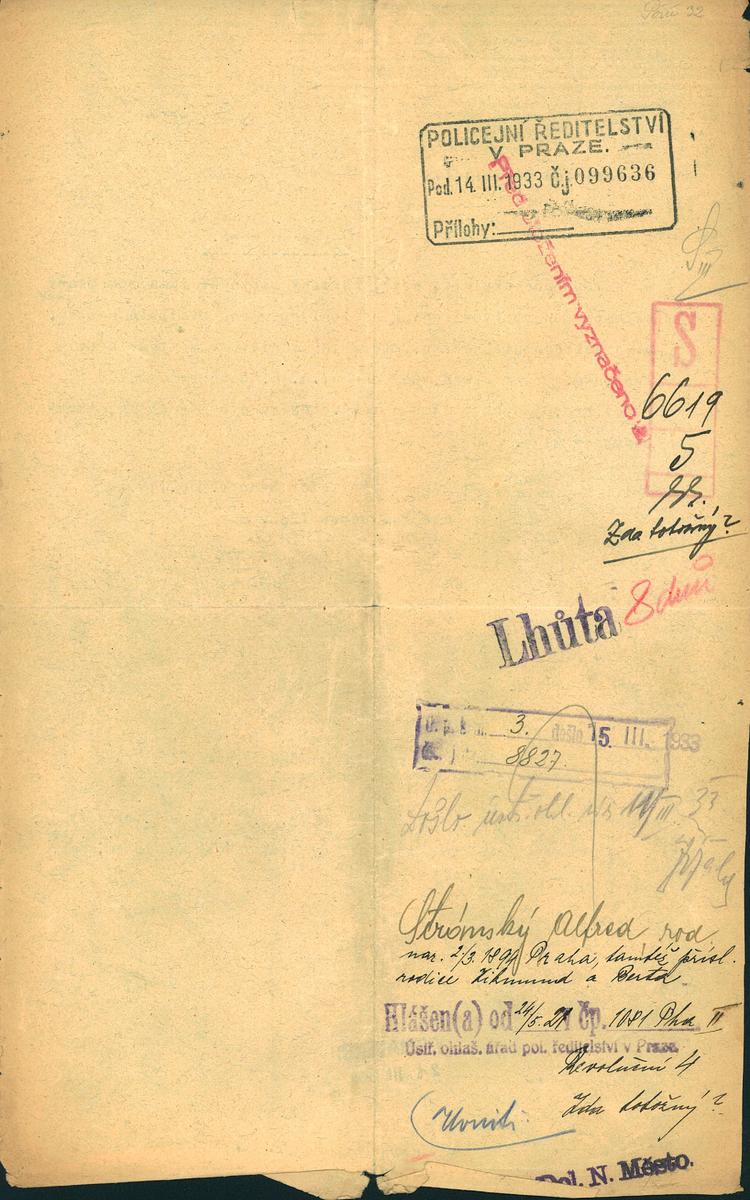 POLICEJNÍ ŘEDITELSTVÍ
V PRAZE.
Pod. 14. III. 1933 Č.j. 099636
Přílohy:
Před uložením vyznačeno
S
6619
5
Zda totožný?
Lhůta 8 dnů
3. došlo 15. III. 1933
8827.
Došlo úst. ohl.
Stránský Alfred rod.
nar. 2/3. 1894 Praha, tamtéž přísl.
rodiče Zikmund a Berta
Hlášen(a) od 24/5. 27 čp. 1081 Pha II
Ústř. ohlaš. úřad pol. ředitelství v Praze.
Revoluční 4
Zda totožný?
Pol. N. Město.